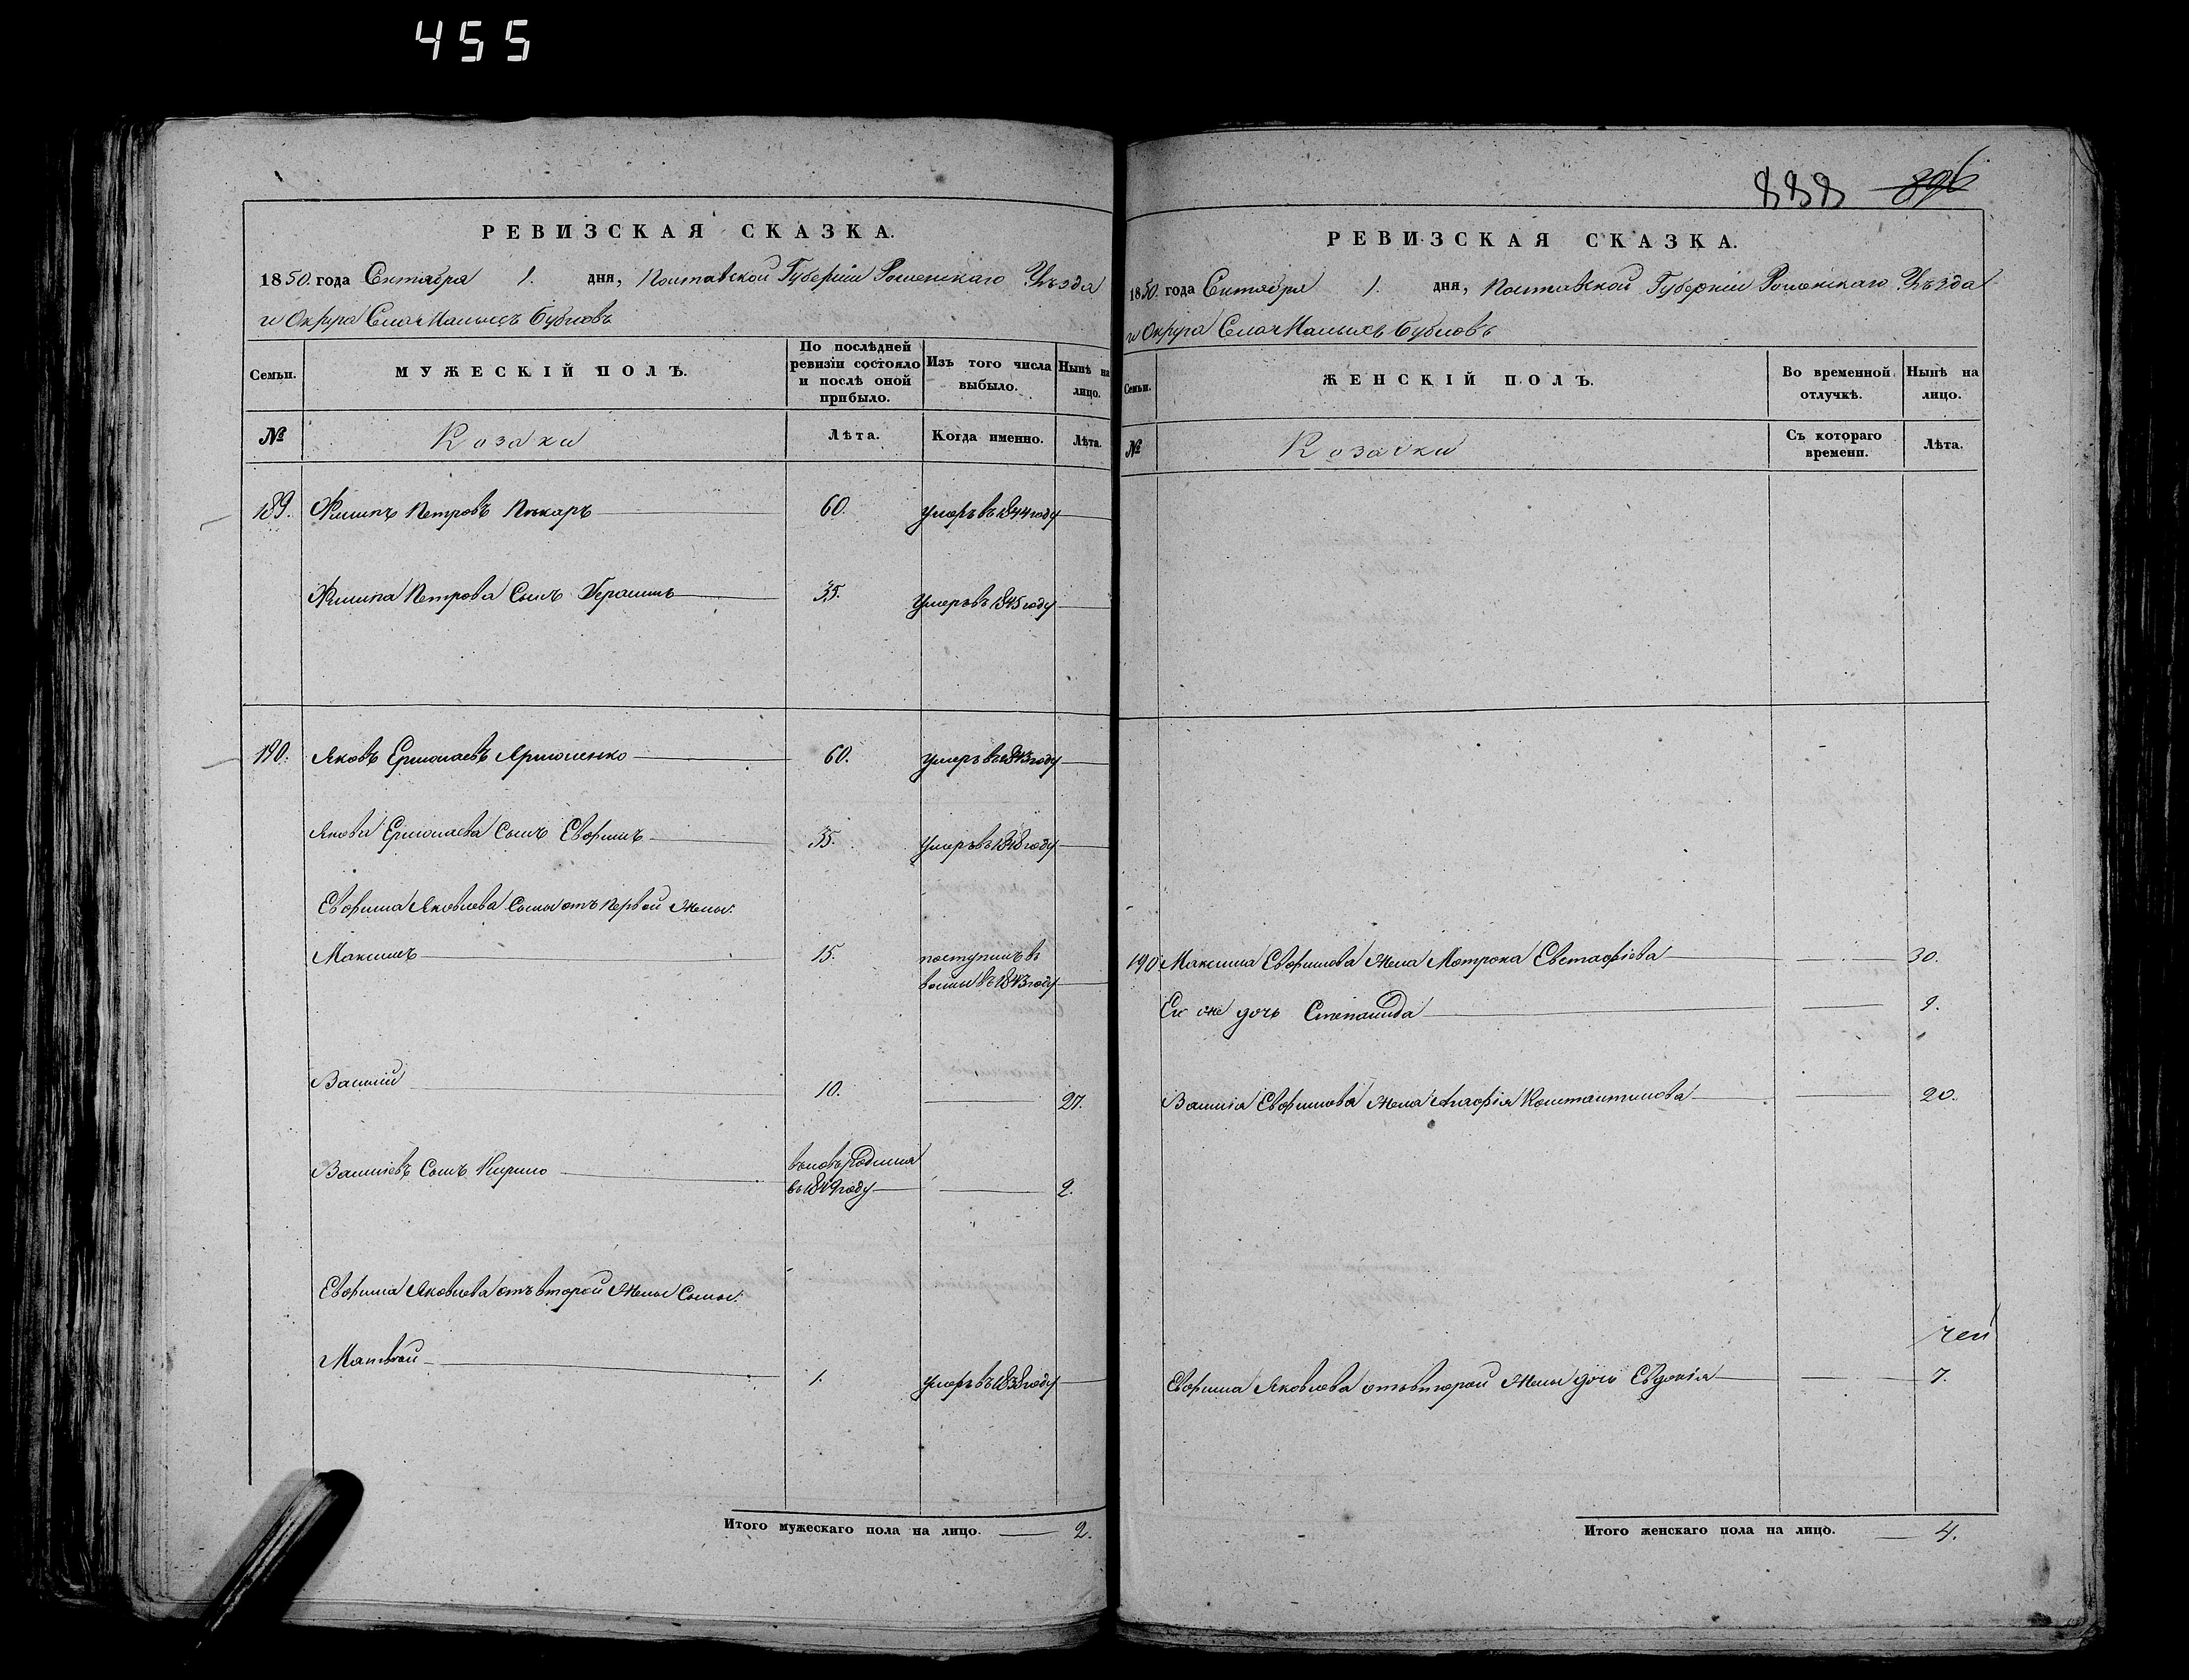 455
РЕВИЗСКАЯ СКАЗКА.
1850. года Сентября 1. дня, Полтавской Губерніи Роменскаго Уѣзда
и Округа Села Малыхъ Бубновъ
Семьи. МУЖЕСКІЙ ПОЛЪ. По послѣдней ревизіи состояло и послѣ оной прибыло. Изъ того числа выбыло. Нынѣ на лицо.
№ Козаки Лѣта. Когда именно. Лѣта.
189. Филипъ Петровъ Пекаръ 60. умеръ въ 1844 году
Филипа Петрова Сынъ Герасимъ 35. Умеръ въ 1845 году
190. Яковъ Ермолаевъ Ярмоленко 60. умеръ въ 1843 году
Якова Ермолаева Сынъ Евфимъ 35. умеръ въ 1848 году
Евфима Яковлева Сыны отъ первой Жены:
Максимъ 15. поступилъ въ
воины въ 1843 году
Василій 10. 27.
Василіевъ Сынъ Кирило вновь родился
въ 1849 году 2.
Евфима Яковлева отъ второй Жены Сыны:
Матвѣй 1. умеръ въ 1838 году
Итого мужескаго пола на лицо. 2.
888 896
РЕВИЗСКАЯ СКАЗКА.
1850. года Сентября 1. дня, Полтавской Губерніи Роменскаго Уѣзда
и Округа Села Малыхъ Бубновъ
Семьи. ЖЕНСКІЙ ПОЛЪ. Во временной отлучкѣ. Нынѣ на лицо.
№ Козачки Съ котораго времени. Лѣта.
190 Максима Евфимова Жена Мотрона Евстафіева 30.
Ея же дочь Степанида 9.
Василія Евфимова Жена Агафія Константинова 20.
Евфима Яковлева отъ второй Жены дочь Евдокія 7.
Итого женскаго пола на лицо. 4.